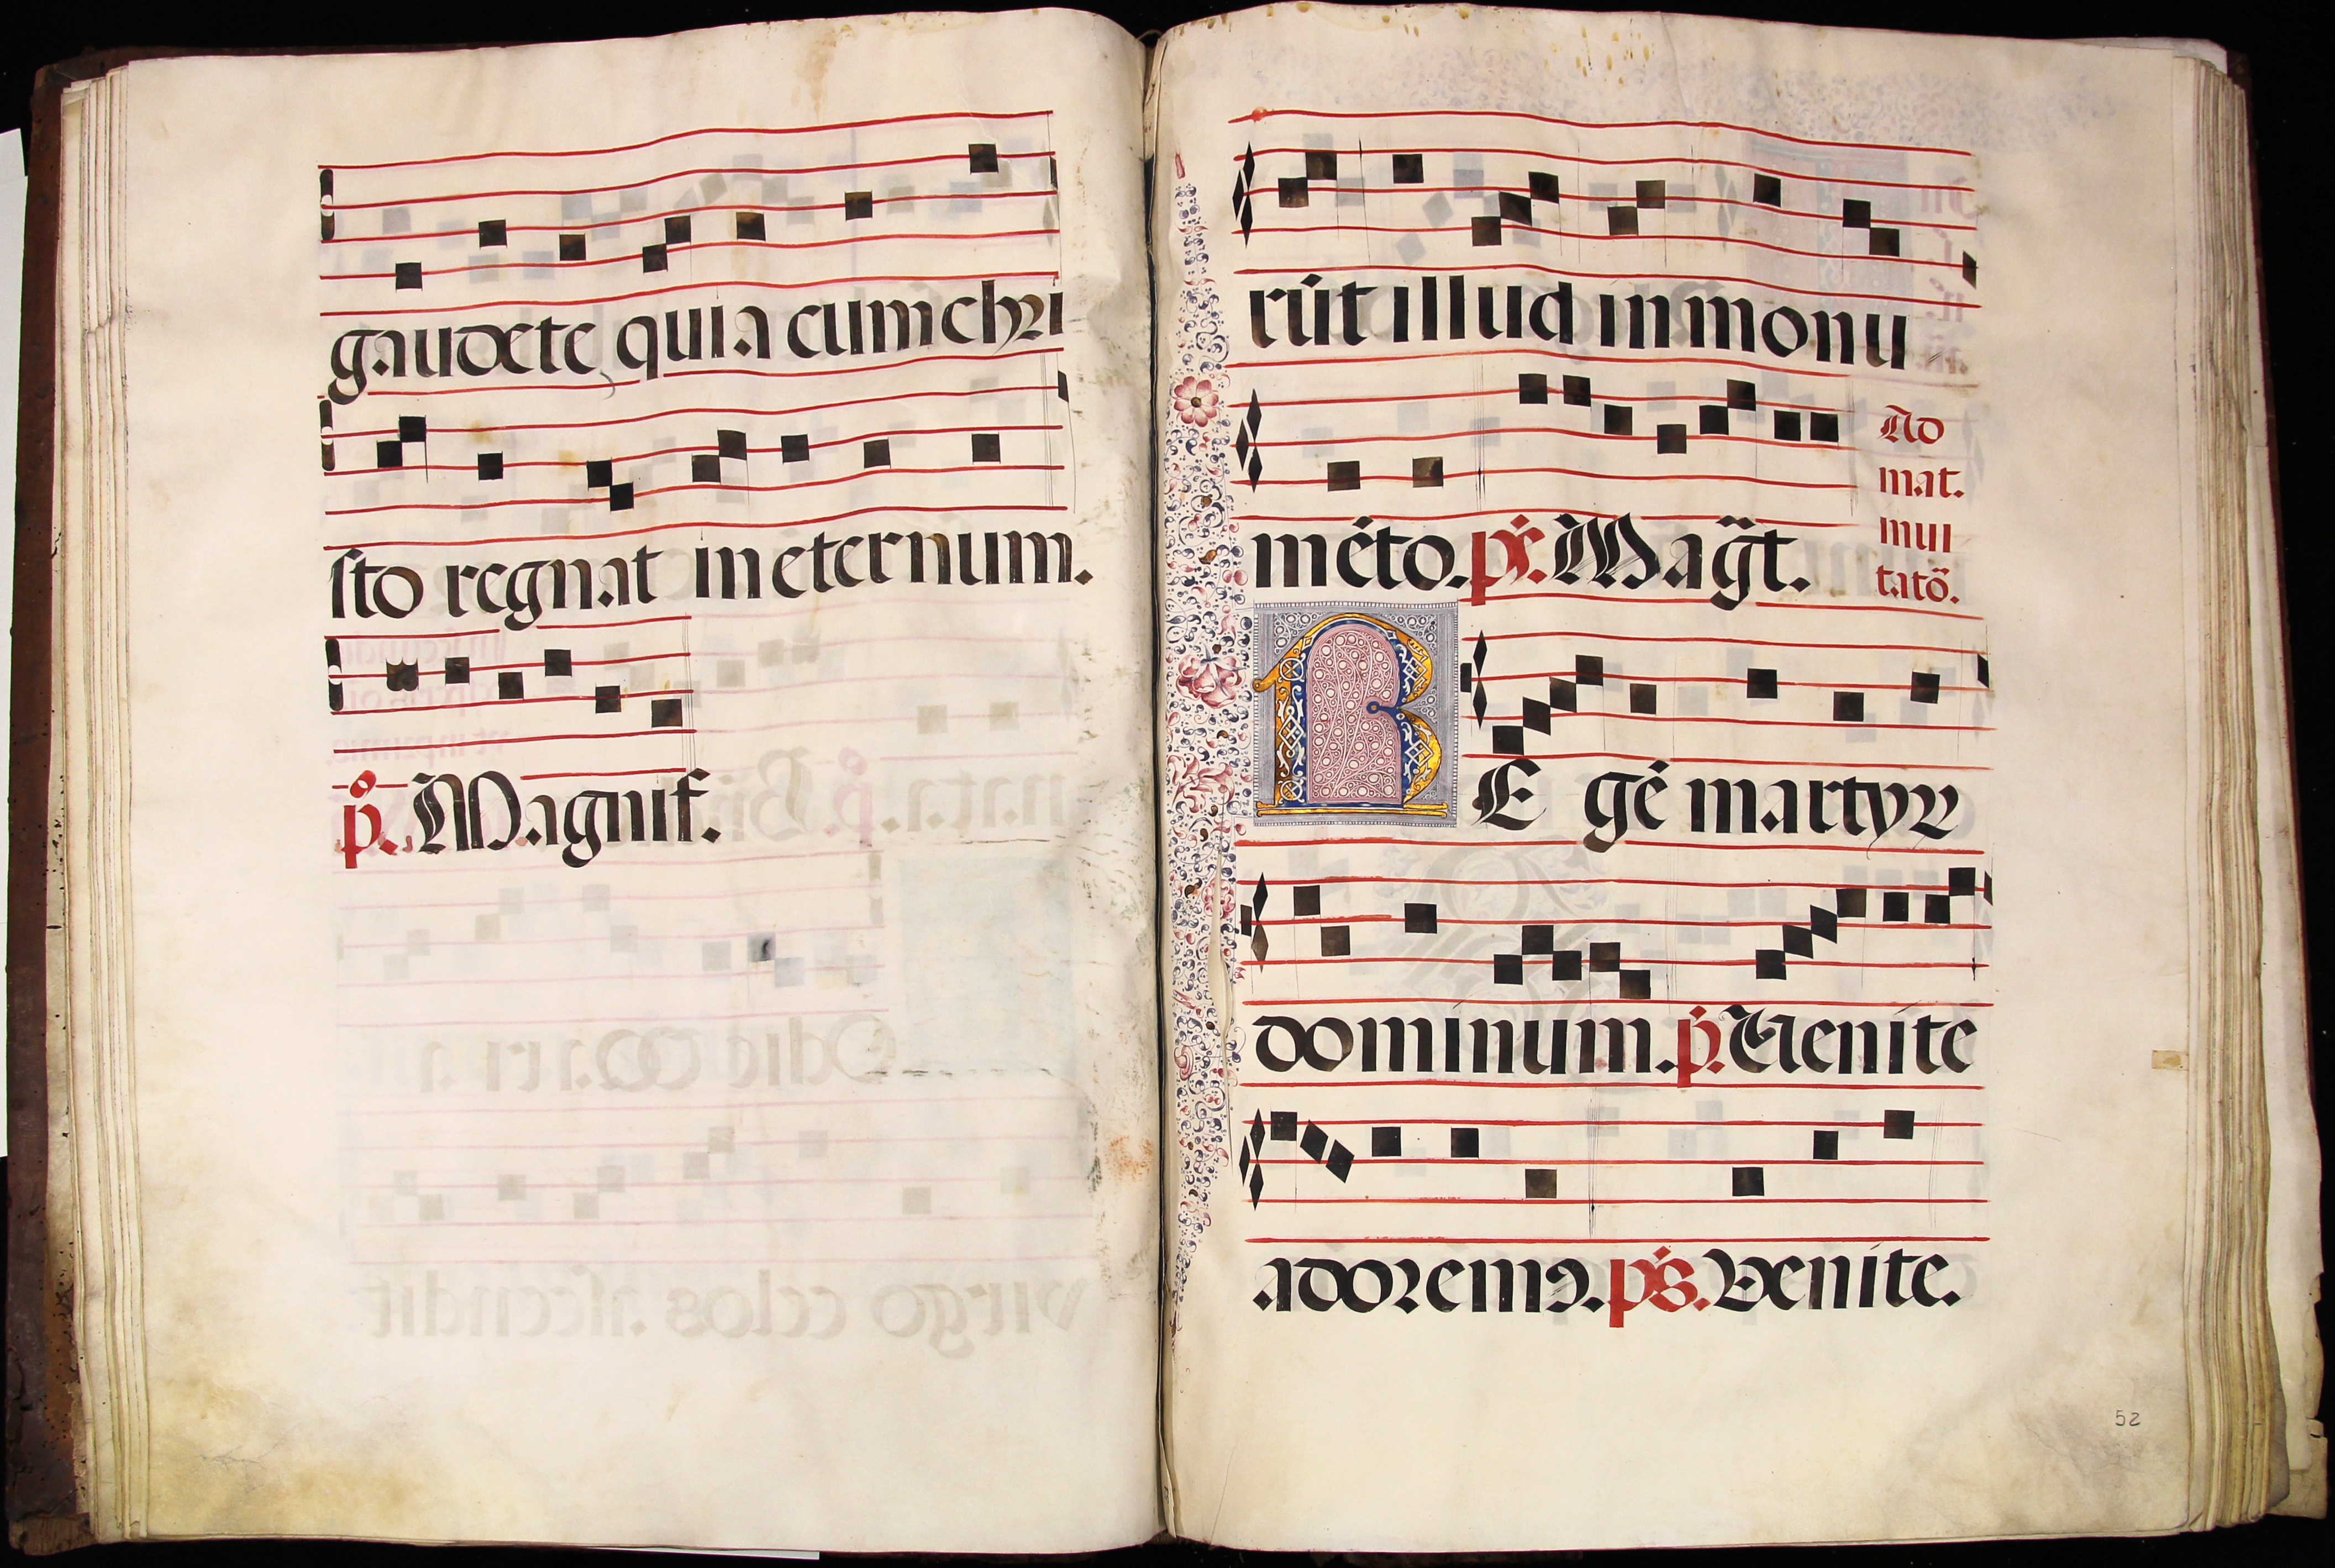 gaudete quia cum chri
sto regnat in eternum.
p̊. Magnif.
rūt illud in monu
mēto. ps. Magt̄.
Ad
mat.
mui
tatō.
RE gē martyꝝ
dominum. p̄. Uenite
adoremꝰ. ps. Venite.
52